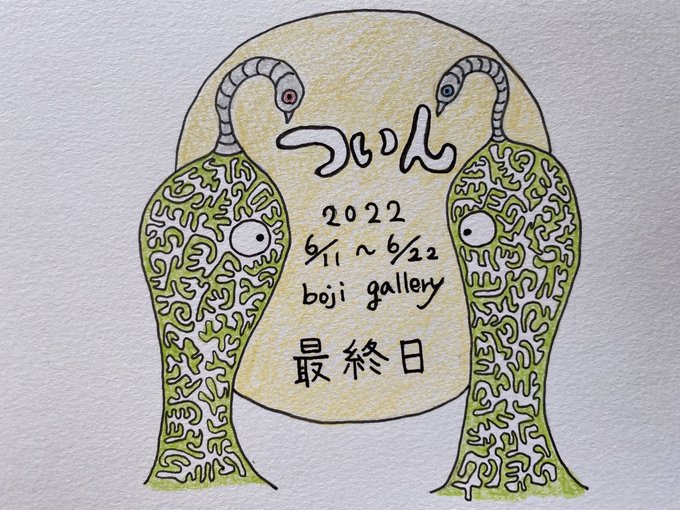 ついん
2022
6/11～6/22
boji gallery
最終日